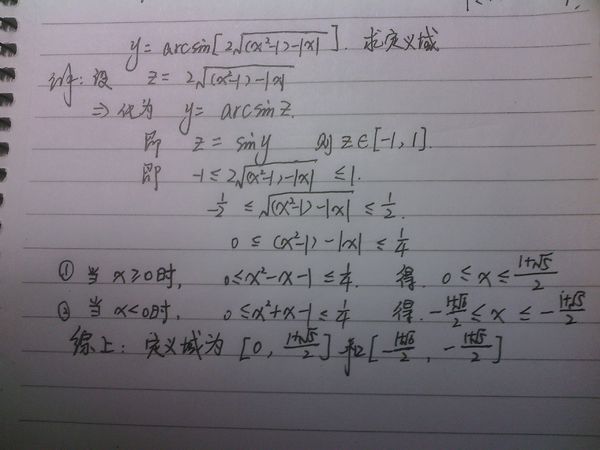 y = arcsin[2√((x²-1)-|x|)]. 求定义域
解: 设 z = 2√((x²-1)-|x|)
⇒ 化为 y = arcsin z.
即 z = sin y 则 z∈[-1, 1].
即 -1 ≤ 2√((x²-1)-|x|) ≤ 1.
-1/2 ≤ √((x²-1)-|x|) ≤ 1/2.
0 ≤ (x²-1)-|x| ≤ 1/4
① 当 x≥0时, 0≤x²-x-1≤1/4. 得. 0≤x≤(1+√5)/2
② 当 x<0时, 0≤x²+x-1≤1/4 得. -(1+√6)/2 ≤ x ≤ -(1+√5)/2
综上: 定义域为 [0, (1+√5)/2] 和 [-(1+√6)/2, -(1+√5)/2]